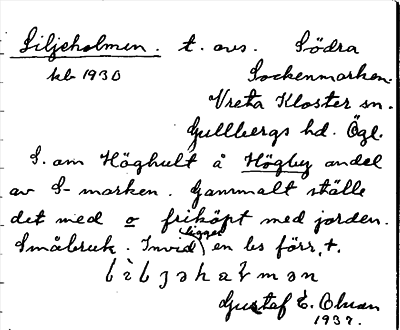 Siljeholmen. t. avs. Södra
kb 1930 Sockenmarken.
Vreta Kloster sn.
Gullbergs hd. Ögl.
S. om Höghult å Högby andel
av S-marken. Gammalt ställe
det med o friköpt med jorden.
Småbruk. Invid ligger en ls förr, t.
Gustaf E. Ohson
1937.